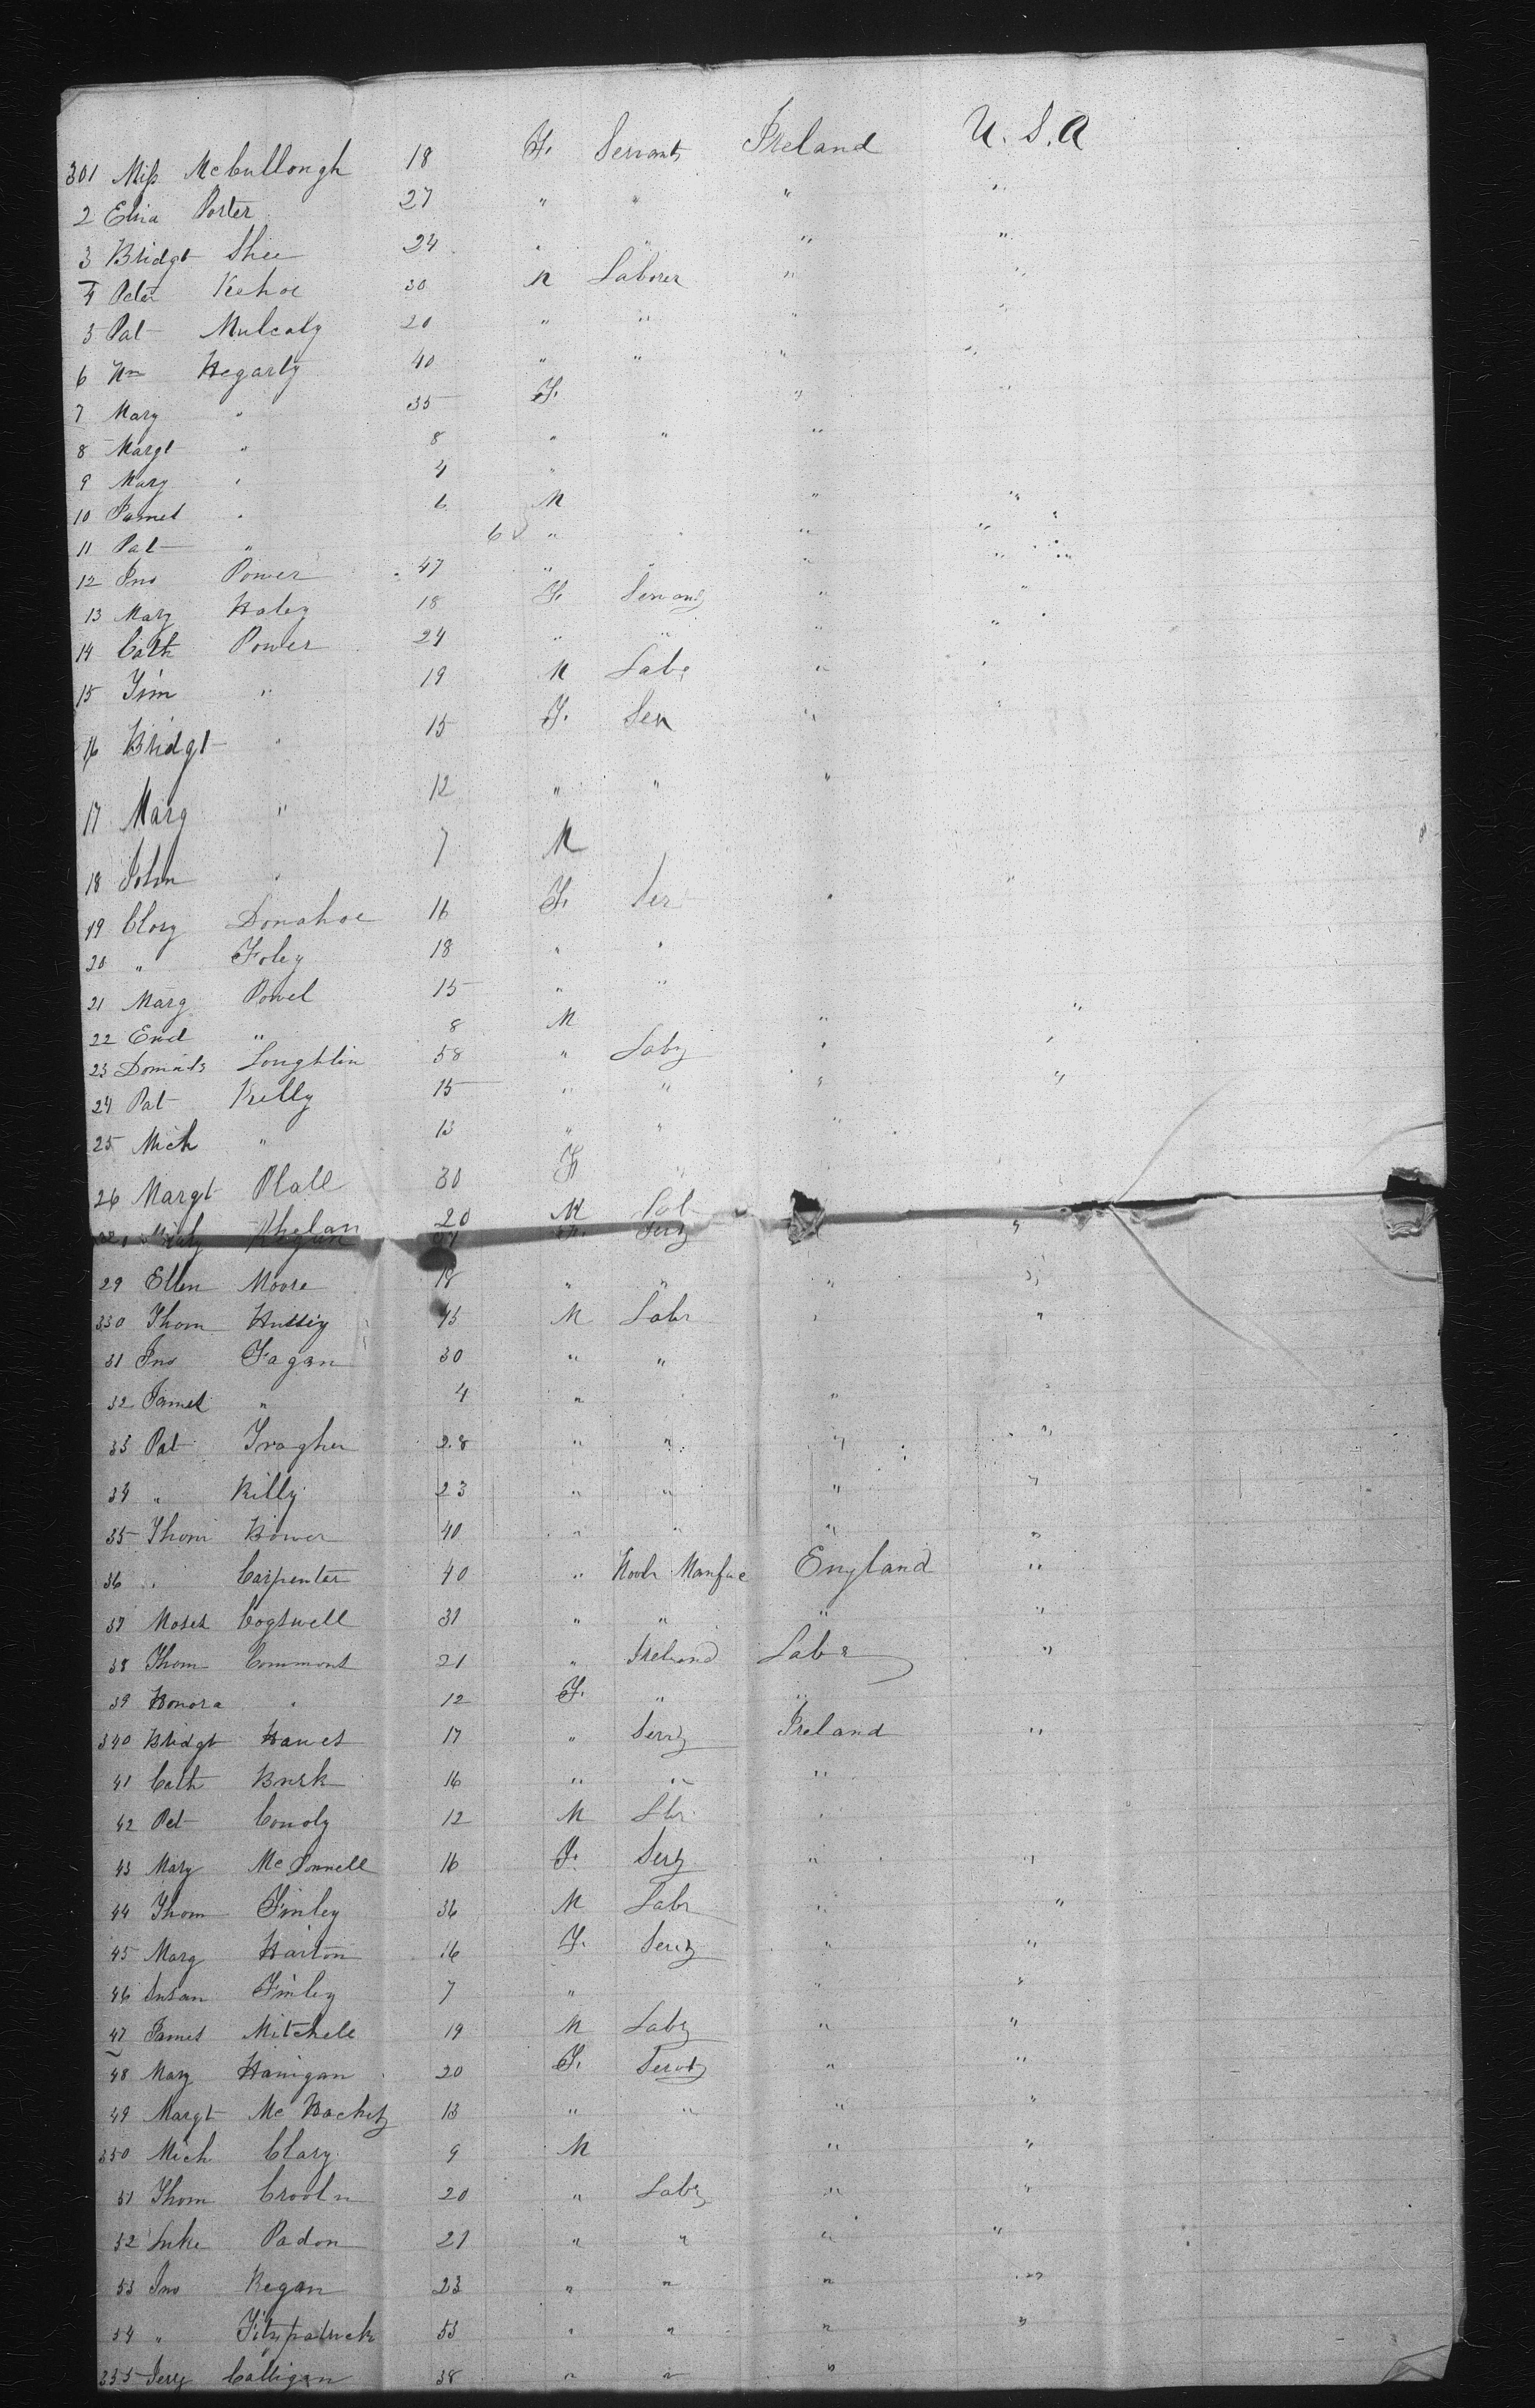 301 Miss McCullough 18 F. Servant Ireland U.S.A
2 Eliza Porter 27 " " " "
3 Bridgt Shee 24 " " " "
4 Peter Kehoe 30 M Laborer " "
5 Pat Mulcaly 20 " " " "
6 Wm Hegarty 40 " " " "
7 Mary " 35 F. " "
8 Margt " 8 " " "
9 Mary " 4 "
10 James " 6 M " "
11 Pat " 6 " " "
12 Jno Power 47 " " "
13 Mary Haley 18 F. Servant " "
14 Cath Power 24 " " " "
15 Jim " 19 M Labr " "
16 Bridgt " 15 F. Ser " "
17 Marg " 12 " " "
18 John " 7 M
19 Clory Donahoe 16 F. Ser " "
20 " Foley 18 " "
21 Marg Powel 15 " "
22 " 8 M " "
23 Loughlin 58 " Labr " "
24 Pat Kelly 15 " " " "
25 Mich " 13 " " "
26 Margt 30 F "
20 M Lab
Phelan F. Sert "
29 Ellen Moore 18 " " " "
330 Thom 45 M Labr " "
31 Jno Fagan 30 " "
32 James " 4 " " "
33 Pat 28 " " " "
34 " Killy 23 " " " "
35 Thom Bower 40 " " " "
36 " Carpenter 40 " Manfac England "
37 Moses Cogswell 31 " " " "
38 Thom Commons 21 " Ireland Labr "
39 Honora " 12 F. " "
340 Bridgt Hawes 17 " Servt Ireland "
41 Cath Burk 16 " " "
42 Pet Conoly 12 M Lbr "
43 Mary McDonnell 16 F. Sert " "
44 Thom Finley 36 M Labr " "
45 Marg Harton 16 F. Sert " "
46 Susan Finley 7 " " "
47 James Mitchell 19 M Labr " "
48 Mary Hanigan 20 F. Servt " "
49 Margt Mc 13 " " " "
350 Mich Clary 9 M " "
51 Thom 20 " Labr " "
52 Luke Padon 21 " " " "
53 Jno Regan 23 " " " "
54 " Fitzpatrick 53 " " " "
355 Jerry Calligan 38 " " "